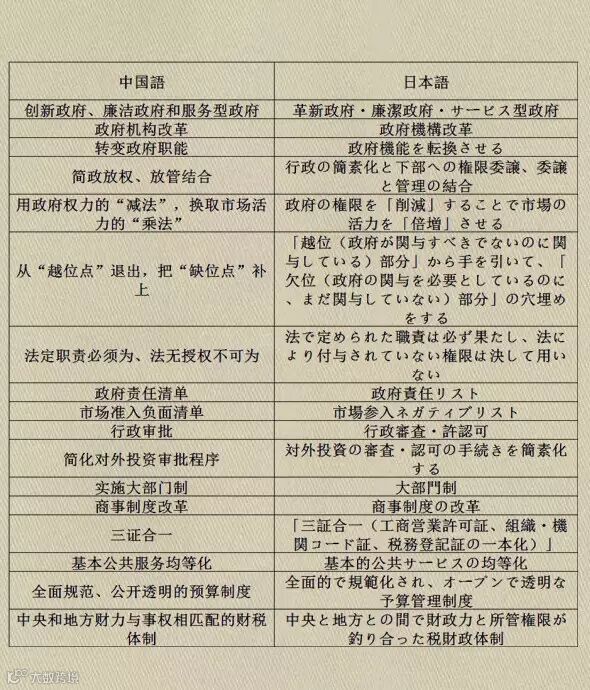 中国語
日本語
创新政府、廉洁政府和服务型政府
革新政府・廉潔政府・サービス型政府
政府机构改革
政府機構改革
转变政府职能
政府機能を転換させる
简政放权、放管结合
行政の簡素化と下部への権限委譲、委譲
と管理の結合
用政府权力的“减法”，换取市场活
力的“乘法”
政府の権限を「削減」することで市場の
活力を「倍増」させる
从“越位点”退出，把“缺位点”补
上
「越位（政府が関与すべきでないのに関
与している）部分」から手を引いて、「
欠位（政府の関与を必要としているのに
、まだ関与していない）部分」の穴埋め
をする
法定职责必须为、法无授权不可为
法で定められた職責は必ず果たし、法に
より付与されていない権限は決して用い
ない
政府责任清单
政府責任リスト
市场准入负面清单
市場参入ネガティブリスト
行政审批
行政審査・許認可
简化对外投资审批程序
対外投資の審査・認可の手続きを簡素化
する
实施大部门制
大部門制
商事制度改革
商事制度の改革
三证合一
「三証合一（工商営業許可証、組織・機
関コード証、税務登記証の一本化）」
基本公共服务均等化
基本的公共サービスの均等化
全面规范、公开透明的预算制度
全面的で規範化され、オープンで透明な
予算管理制度
中央和地方财力与事权相匹配的财税
体制
中央と地方との間で財政力と所管権限が
釣り合った税財政体制
大数跨境